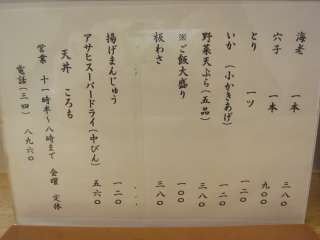 海老 一本 三八〇
穴子 一本 九〇〇
とり 一ツ 一二〇
いか(小かきあげ) 一二〇
野菜天ぷら(五品) 三八〇
※ご飯大盛り 一〇〇
板わさ 三八〇
揚げまんじゅう 一二〇
アサヒスーパードライ(中びん) 五六〇
天丼 ころも
営業 十一時半~八時まで 金曜 定休
電話(三四) 八九六〇